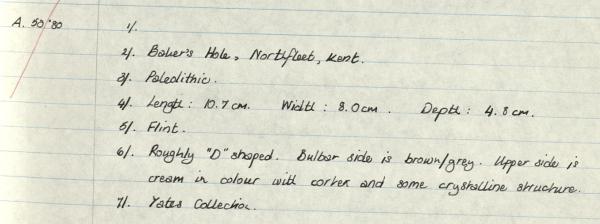 A. 50 '80 1/.
2/. Baker's Hole, Northfleet, Kent.
3/. Paleolithic.
4/. Length: 10.7 cm. Width: 8.0 cm. Depth: 4.8 cm.
5/. Flint.
6/. Roughly "D" shaped. Bulbar side is brown/grey. Upper side is
cream in colour with cortex and some crystalline structure.
7/. Yates Collection.